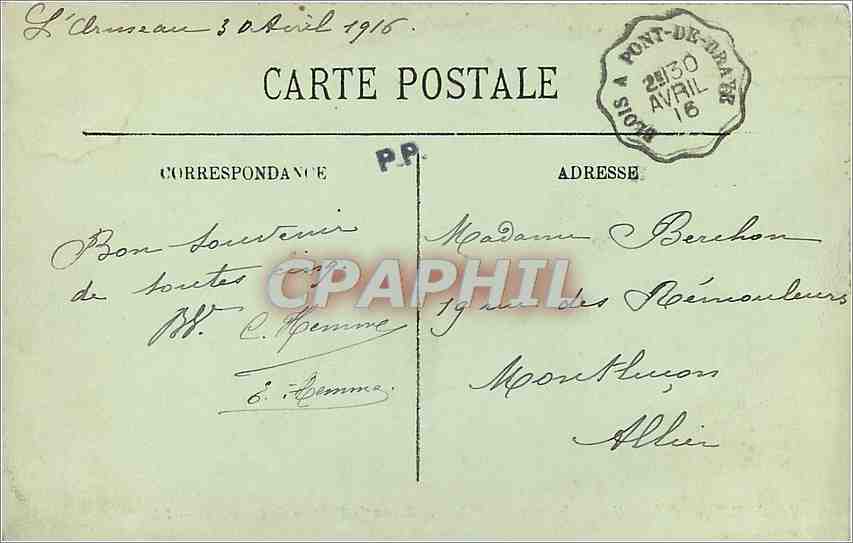 30 Avril 1916.
CARTE POSTALE
BLOIS A PONT-DE-BRAYE
2E 30
AVRIL
16
P.P.
CORRESPONDANCE
ADRESSE
Bon souvenir
de toutes cinq.
C. Hemme
E. Hemme.
Madame Berchon
19 rue des Rémouleurs
Montluçon
Allier
CPAPHIL